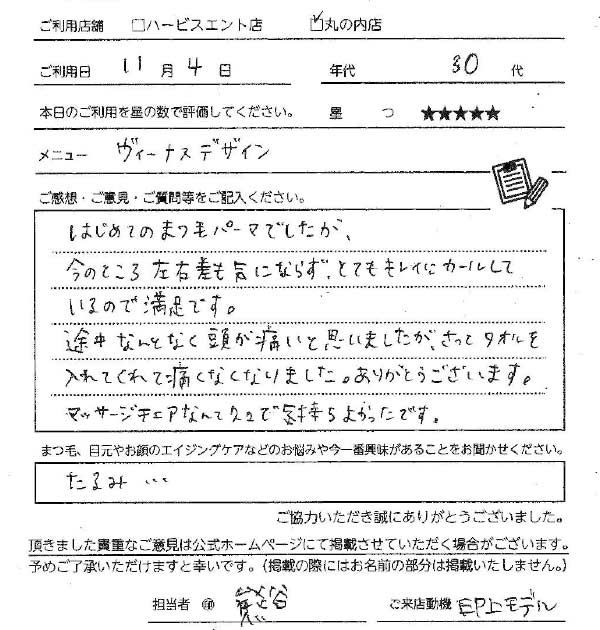 ご利用店舗 □ハービスエント店 ☑丸の内店
ご利用日 11月4日 年代 30代
本日のご利用を星の数で評価してください。 星 つ ★★★★★
メニュー ヴィーナスデザイン
ご感想・ご意見・ご質問等をご記入ください。
はじめてのまつ毛パーマでしたが、
今のところ左右差も気にならず、とてもキレイにカールして
いるので満足です。
途中なんとなく頭が痛いと思いましたが、さっとタオルを
入れてくれて痛くなくなりました。ありがとうございます。
マッサージチェアなんて久々で気持ちよかったです。
まつ毛、目元やお顔のエイジングケアなどのお悩みや今一番興味があることをお聞かせください。
たるみ…
ご協力いただき誠にありがとうございました。
頂きました貴重なご意見は公式ホームページにて掲載させていただく場合がございます。
予めご了承いただけますと幸いです。(掲載の際にはお名前の部分は掲載いたしません。)
担当者 ㊞ ご来店動機 モデル